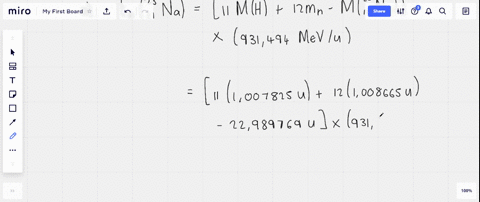 miro My First Board Share 
Na) = [11 M(H) + 12mn - M(
× (931,494 MeV/u)
= [11 (1,007825 u) + 12 (1,008665 u)
- 22,989769 u] × (931,
100%